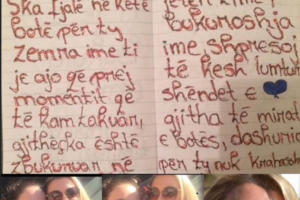 Ska fjalë në këtë
botë për ty
zemra ime ti
je ajo që prej
momentit që
të kam takuar,
gjithëçka është
zbukuruar në
bukuroshja
ime shpresoj
të kesh lumturi
shëndet e
gjitha të mirat
e botës, dashuria
për ty nuk